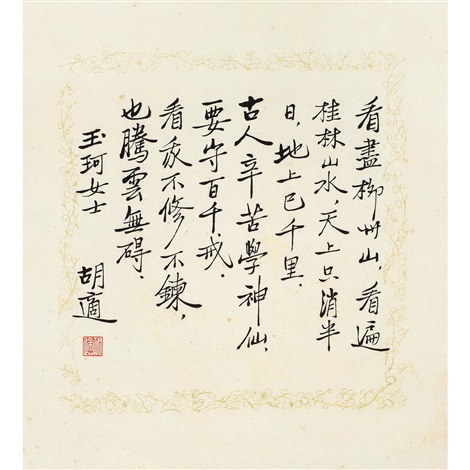 看盡柳州山，看遍
桂林山水，天上只消半
日，地上已千里．
古人辛苦學神仙，
要守百千戒．
看我不修不鍊，
也騰雲無碍．
玉珂女士
胡適